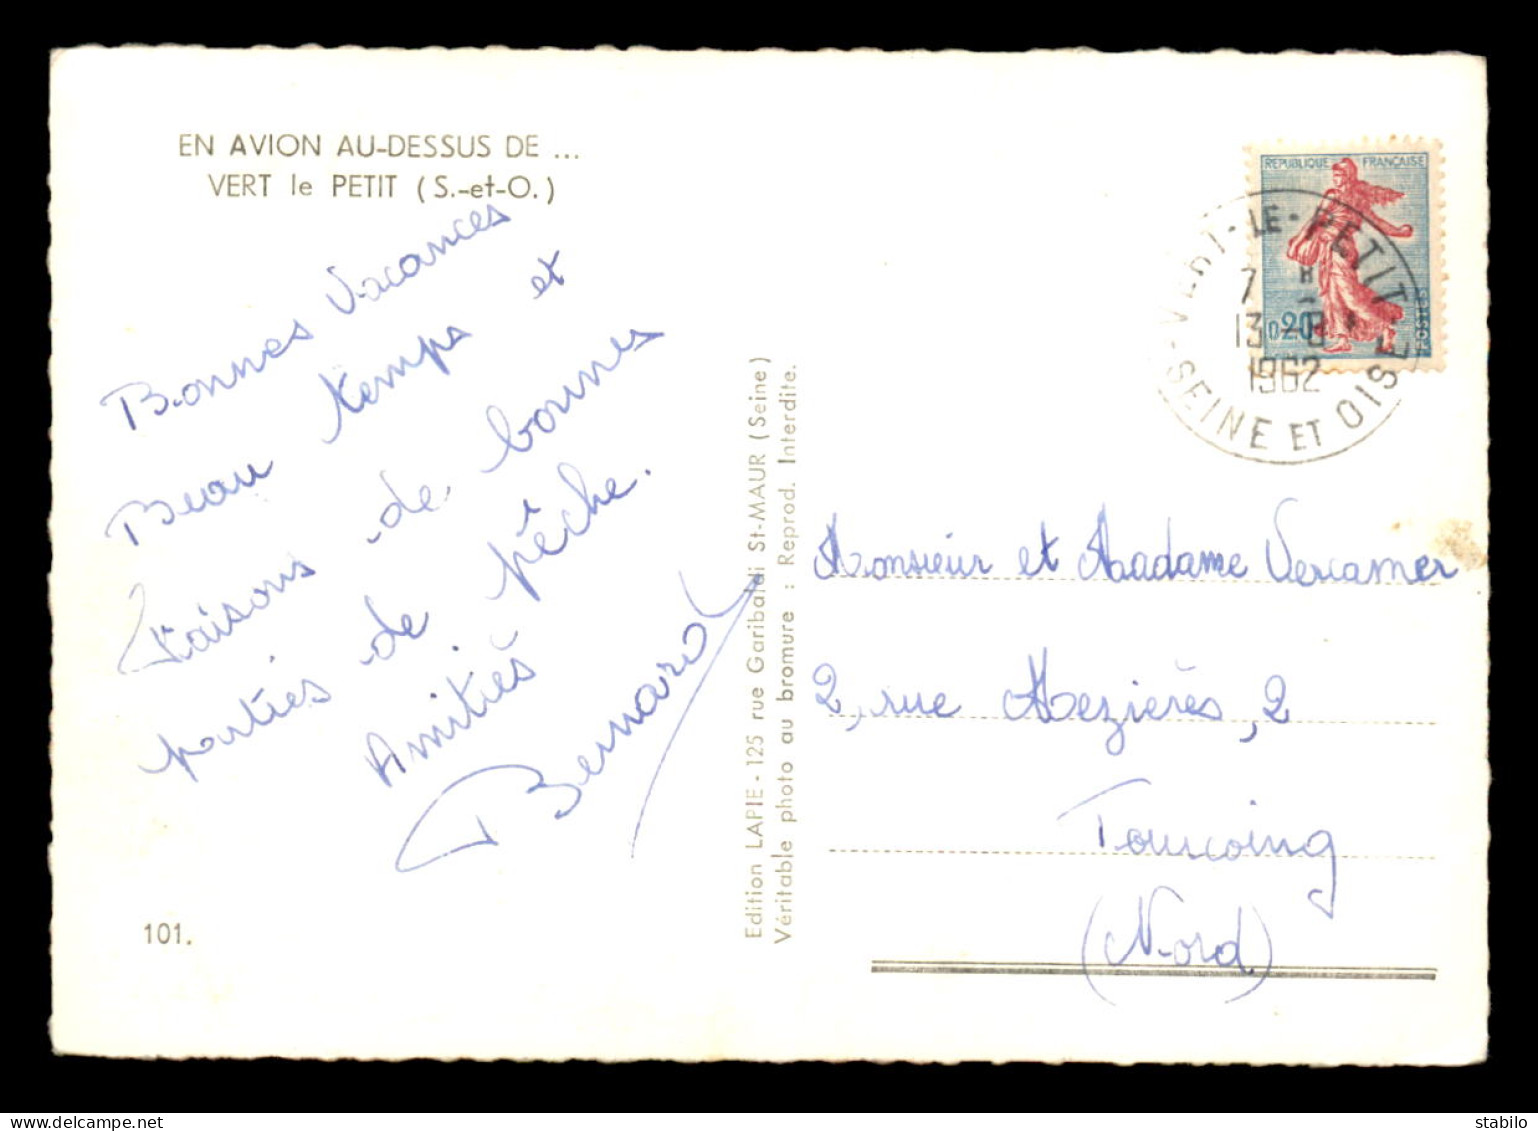 EN AVION AU-DESSUS DE ...
VERT le PETIT (S.-et-O.)
Bonnes Vacances
Beau temps et
Faisons de bonnes
parties de pêche.
Amitiés
Bernard
101.
Edition LAPIE - 125 rue Garibaldi St-MAUR (Seine)
Véritable photo au bromure : Reprod. Interdite.
REPUBLIQUE FRANÇAISE
0,20
POSTES
VERT-LE-PETIT
7 H
13 -8
1962
SEINE ET OISE
Monsieur et Madame Vercamer
2, rue Mezières, 2
Tourcoing
(Nord)
stabilo